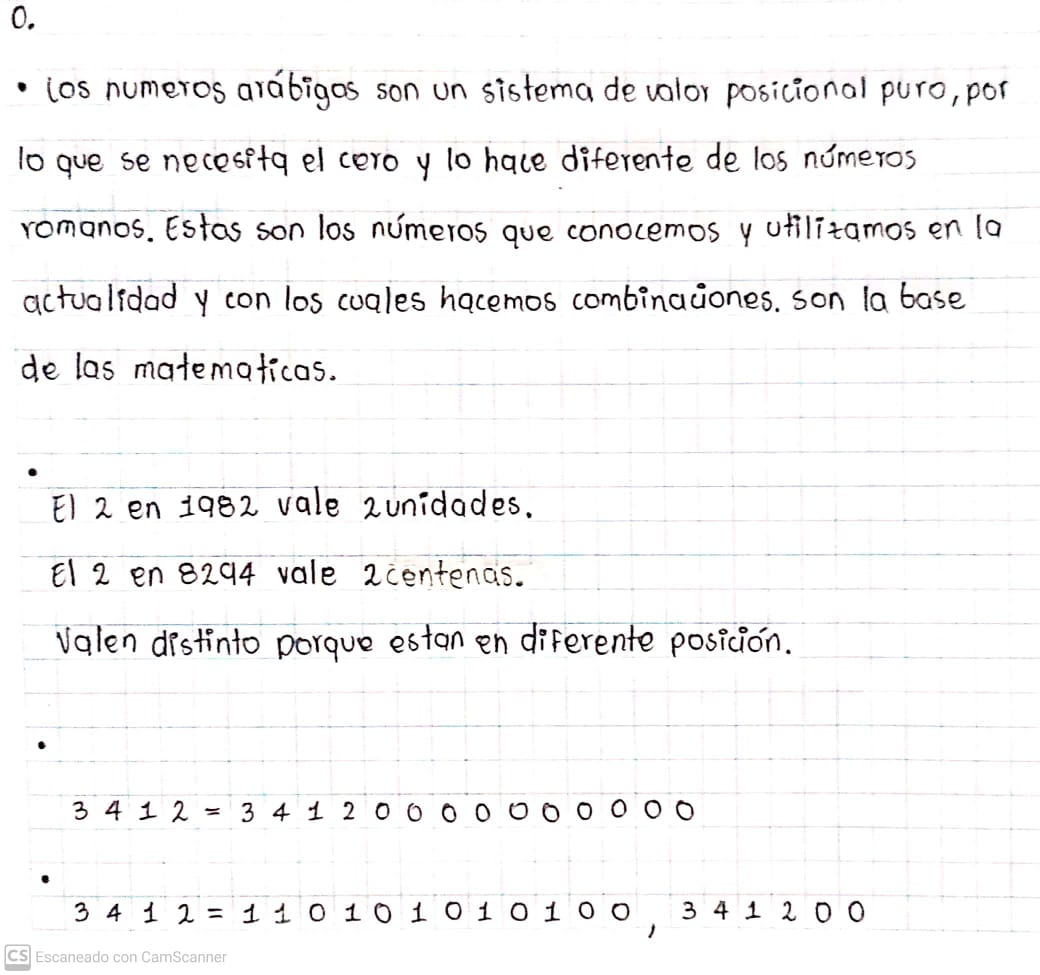 0.
• los numeros arábigos son un sistema de valor posicional puro, por
lo que se necesita el cero y lo hace diferente de los números
romanos. Estos son los números que conocemos y utilizamos en la
actualidad y con los cuales hacemos combinaciones. son la base
de las matematicas.
•
El 2 en 1982 vale 2 unidades.
El 2 en 8294 vale 2 centenas.
Valen distinto porque estan en diferente posición.
•
3 4 1 2 = 3 4 1 2 0 0 0 0 0 0 0 0 0 0
•
3 4 1 2 = 1 1 0 1 0 1 0 1 0 1 0 0 , 3 4 1 2 0 0
CS Escaneado con CamScanner